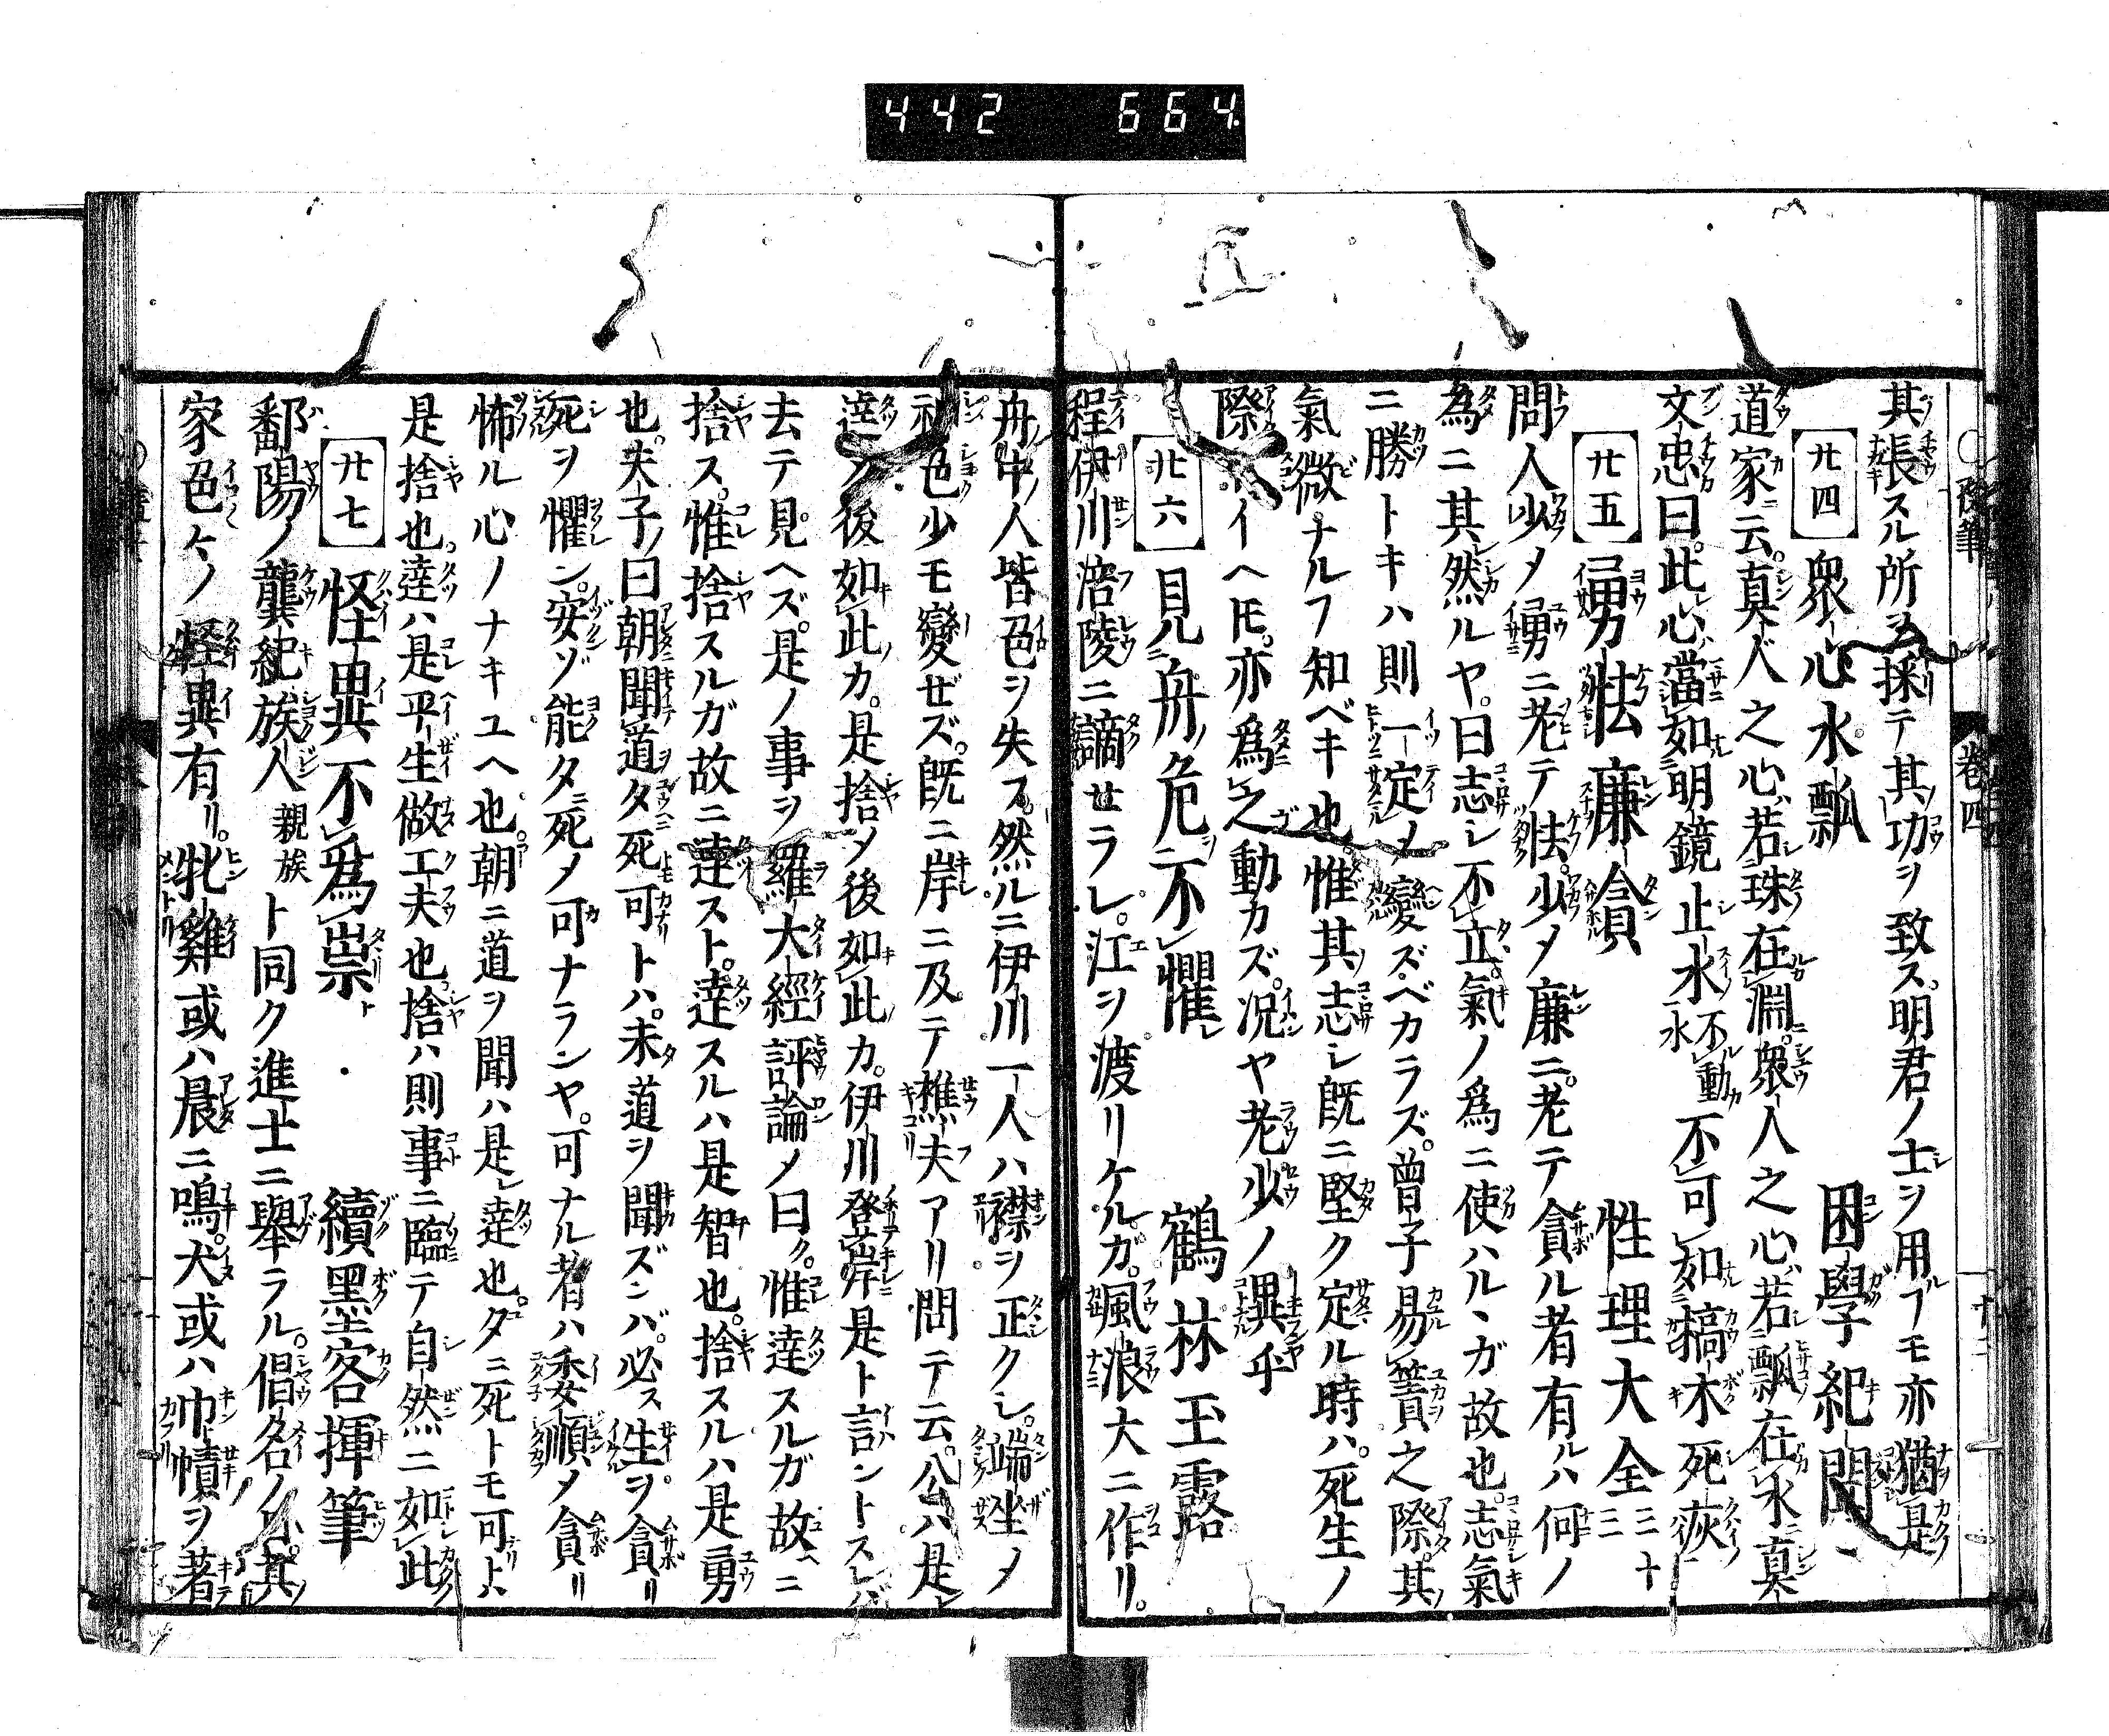 442 664
其長スル所ヲ採テ其功ヲ致ス。明君ノ士ヲ用ルヿモ亦猶是
廿四 衆心水瓢 困學紀聞
道家ニ云。真人之心、若珠在淵。衆人之心、若瓢在水真
文忠曰。此心、當如明鏡止水不動水不可如槁木死灰
廿五 勇怯廉貪 性理大全三十三
問人少メ勇ニ老テ怯。少メ廉ニ。老テ貪ル者有ルハ何ノ
為ニ其然ルヤ。曰志シ不立。氣ノ為ニ使ハルヽガ故也。志氣
ニ勝トキハ則一定メ變ズベカラズ。曽子易簀之際。其
氣微ナルヿ知ベキ也惟其志シ既ニ堅ク定ル時ハ。死生ノ
際トイヘ𪜈。亦為之動カズ。况ヤ老少ノ異乎
廿六 見舟危不懼 鶴林玉露
程伊川涪陵ニ謫せラレ。江ヲ渡リケルガ。颯浪大ニ作リ。
舟中ノ人皆色ヲ失フ。然ルニ伊川一人ハ襟ヲ正クシ。端坐メ
神色少モ變ぜズ。既ニ岸ニ及テ樵夫アリ問テ云。公ハ是
達ノ後如此カ。是捨メ後如此カ。伊川登岸是ト言ントスレバ
去テ見ヘズ。是ノ事ヲ羅大經評論メ曰ク。惟達スルガ故ニ
捨ス。惟捨スルガ故ニ達スト。達スルハ是智也。捨スルハ是勇
也。夫子ノ曰朝聞道夕死可トハ。未道ヲ聞ズンバ。必ス生ヲ貪リ
死ヲ懼ン。安ゾ能夕ニ死メ可ナランヤ。可ナル者ハ委順メ貪リ
怖ル心ノナキユヘ也。朝ニ道ヲ聞ハ是達也。夕ニ死トモ可トハ
是捨也。達ハ是平生做工夫也捨ハ則事ニ臨テ自然ニ如此
廿七 怪異不為祟 續墨客揮筆
鄱陽ノ龔紀族人親族ト同ク進士ニ擧ラル。倡名ノ日。其
家色々ノ怪異有リ。牝雞或ハ晨ニ鳴。犬或ハ巾幘ヲ著